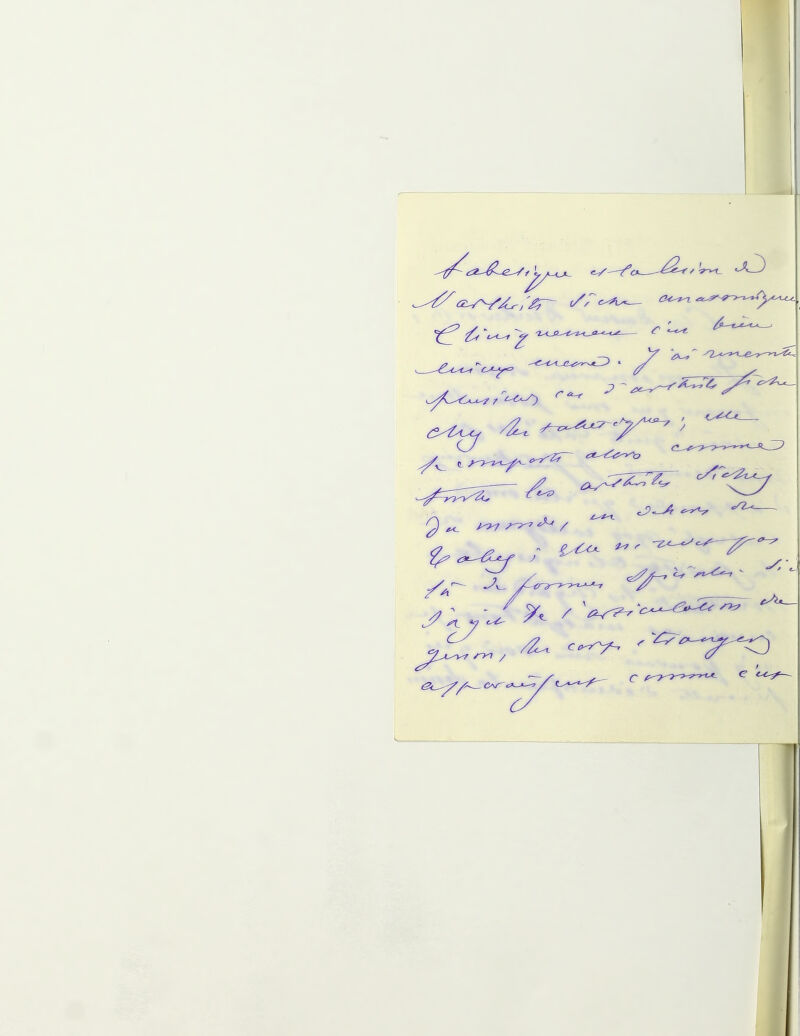 tabetique est la lesion de
l'arthrite sèche anatomiquem.
Cliniquement c'est bien
mieux encore. J'ai rencontré
plusieurs cas d'arthrite sèche
chez les tabetiques; elle
se comporte alors comme
toutes les arthrites sèches
du monde, en dehors du
Tabes; elle ne revet pas
là de formes spéciales. S'il
s'agit de l'articulation du
genou, les corps étrangers
apparaissent comme c'est